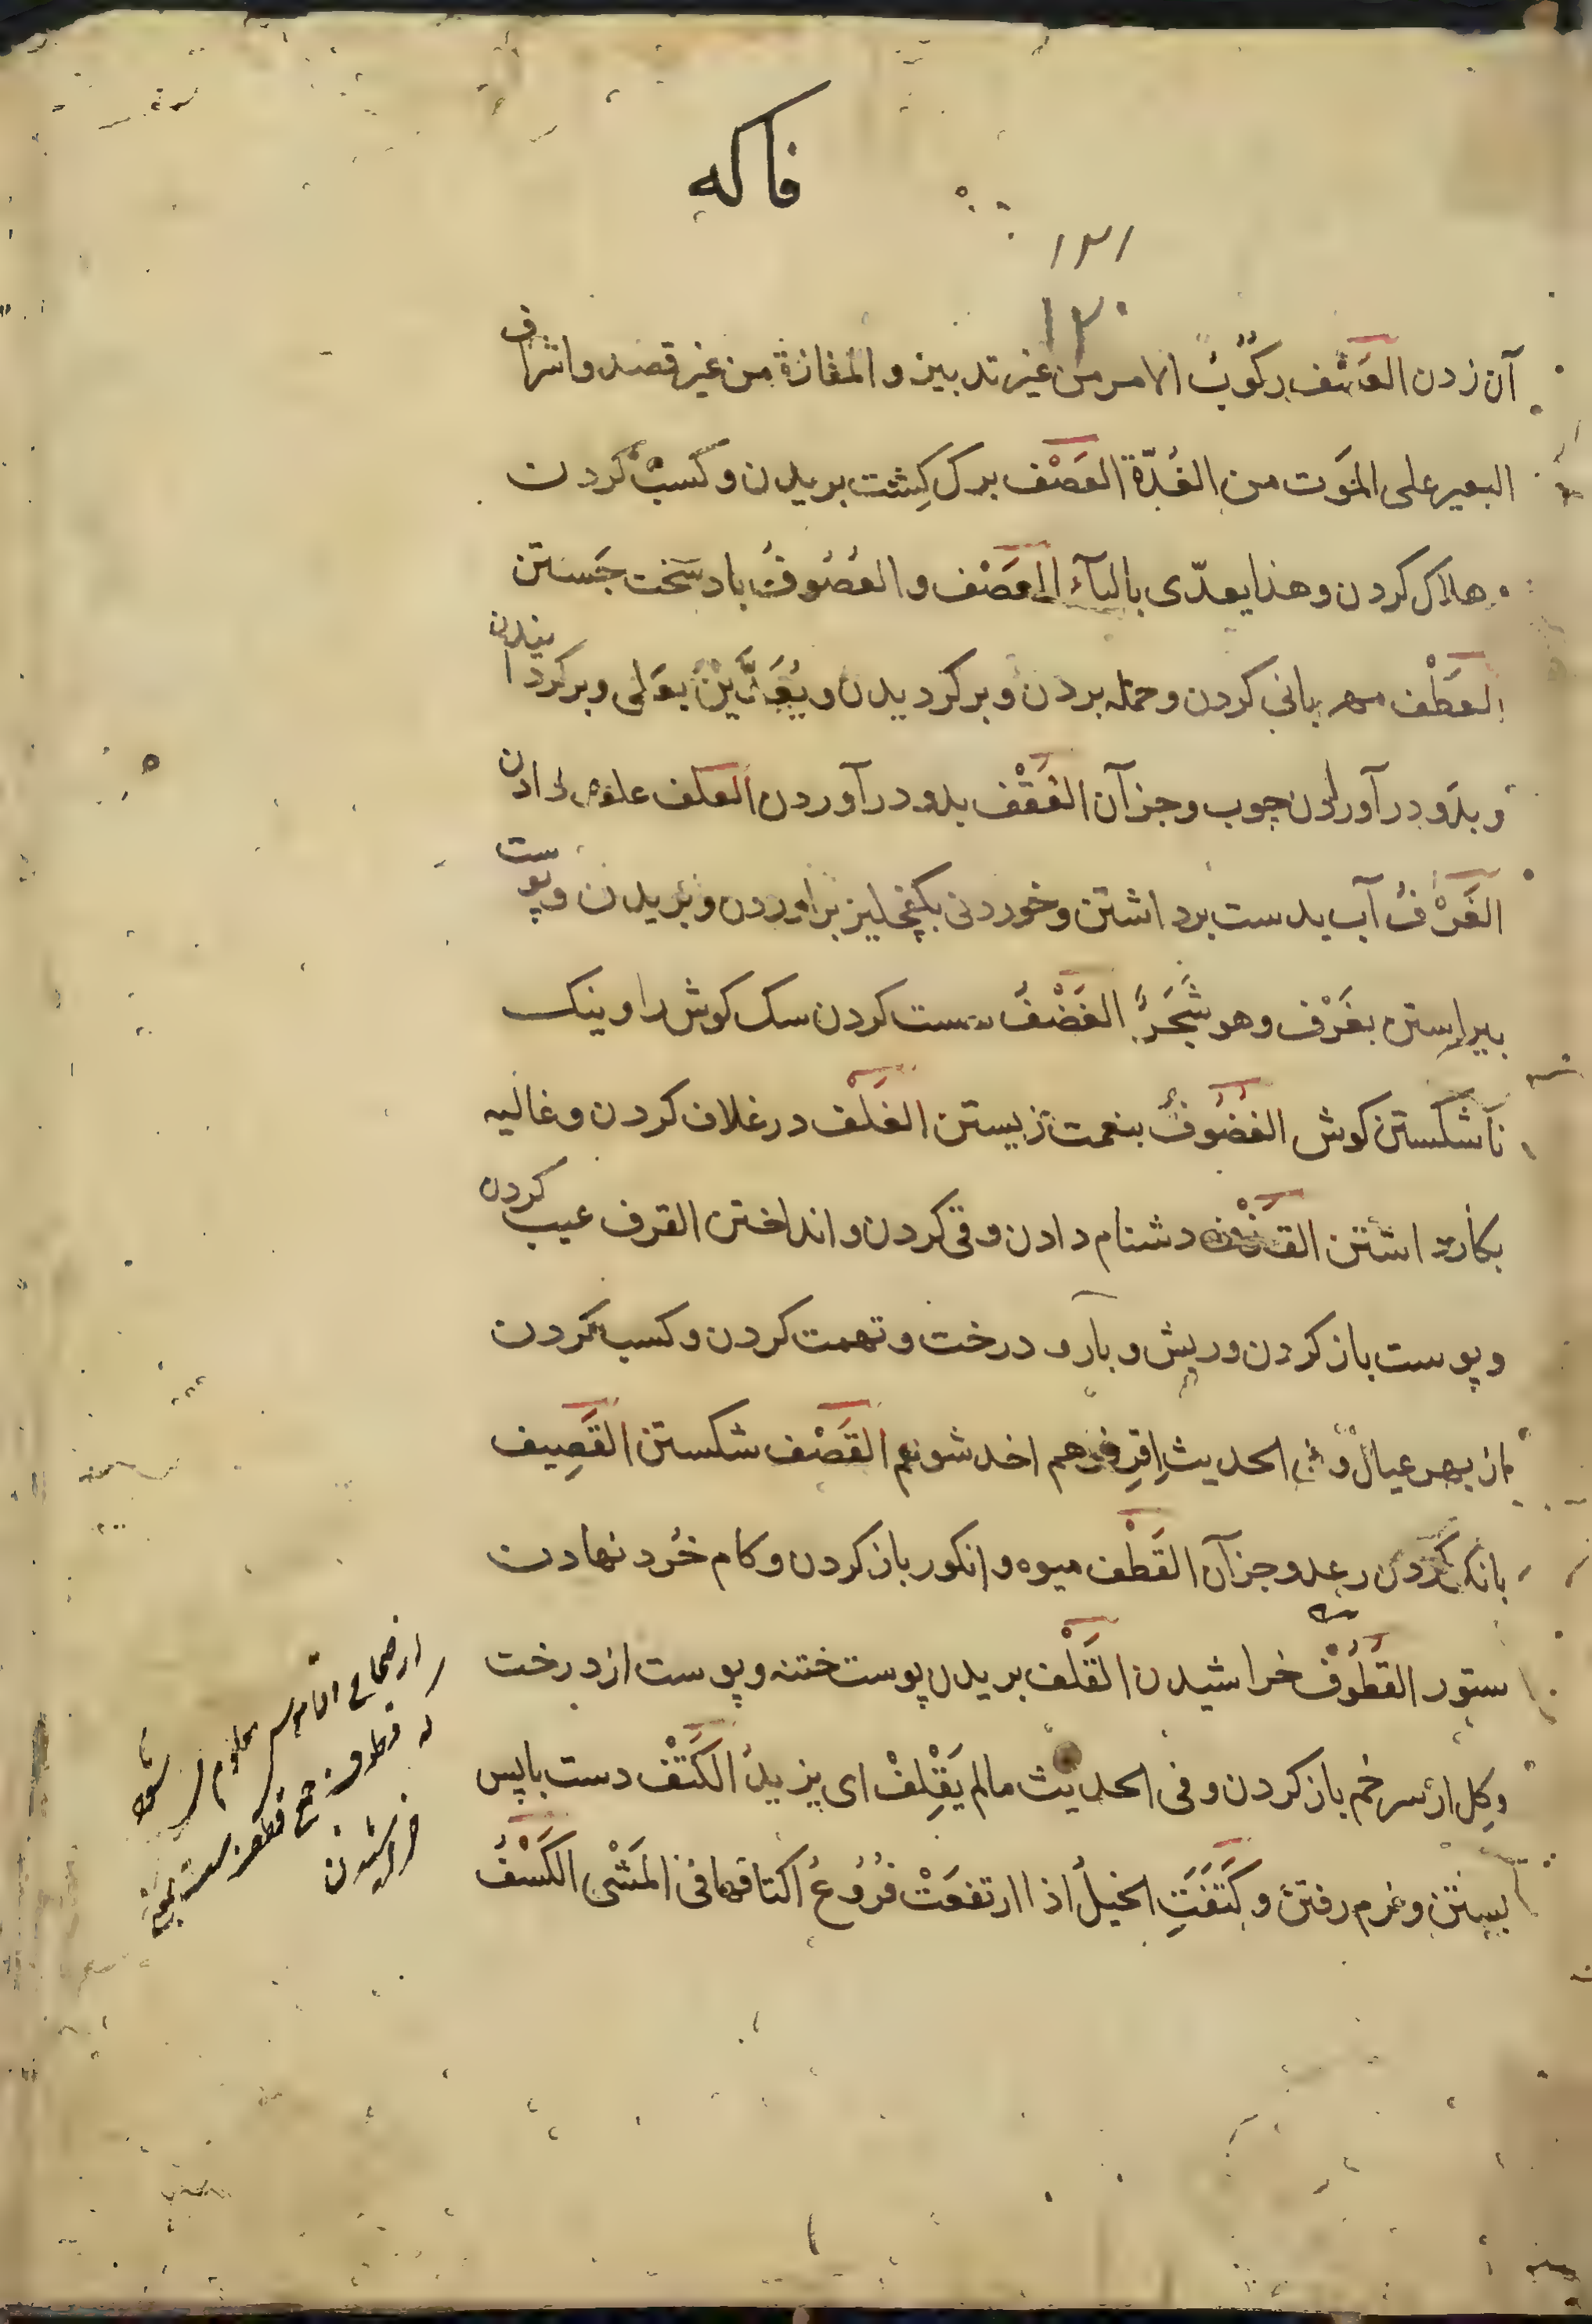 فاکه
۱۳۱
۱۳۰
آن زدن العَسْف رکُوبُ الامر من غیر تدبیر و المفازة من غیر قصد واشراف
البعیر علی المَوت من الغُدّة العَصْف برک کِشت بریدن و کسب کردن
هلاک کردن وهذا یعدّی بالبآء العَصْف والعُصُوفُ باد سَخت جَستن
العَطْف مهربانی کردن و حمله بردن و برکردیدن ویُعَدَّیَنْ بعَلی و برکردانیدن
و بدو درآوردن چوب و جزآن العَقْف بدو درآوردن العَلف علف دادن
الغَرْفُ آب بدست برداشتن وخوردنی بکفچلیز براوردن و بُریدن وپوست
بیراستن بغَرْف وهو شَجَرٌ الغَضْفُ سست کردن سک کوش را و نیک
ناشکستن کوش الغضُوفُ بنعمت زیستن الغَلْف در غلاف کردن و غالیه
بکارداشتن القَذْف دشنام دادن و قی کردن و انداختن القرف عیب کردن
و پوست باز کردن وریش و بار و درخت و تهمت کردن و کسب کردن
از بهر عیال و فی الحدیث القَصْف شکستن القَصِیف
بانک کردن رعد و جزآن القَطْف میوه و انکور باز کردن و کام خُرد نهادن
ستور القُطُوفْ خراشیدن القَلْف بریدن پوست ختنه و پوست از درخت
وکِل از سر خم باز کردن و فی الحدیث مالم یَقْلِفْ ای یزیدُ الکَتْف دست باپس
بستن و نرم رفتن و کَتَفَتِ الخیلُ اذا ارتفعَتْ فُرُوعُ اکتافها فی المَشْی الکَسْفُ
معلوم
قطوف جمع قطف
خراشیدن